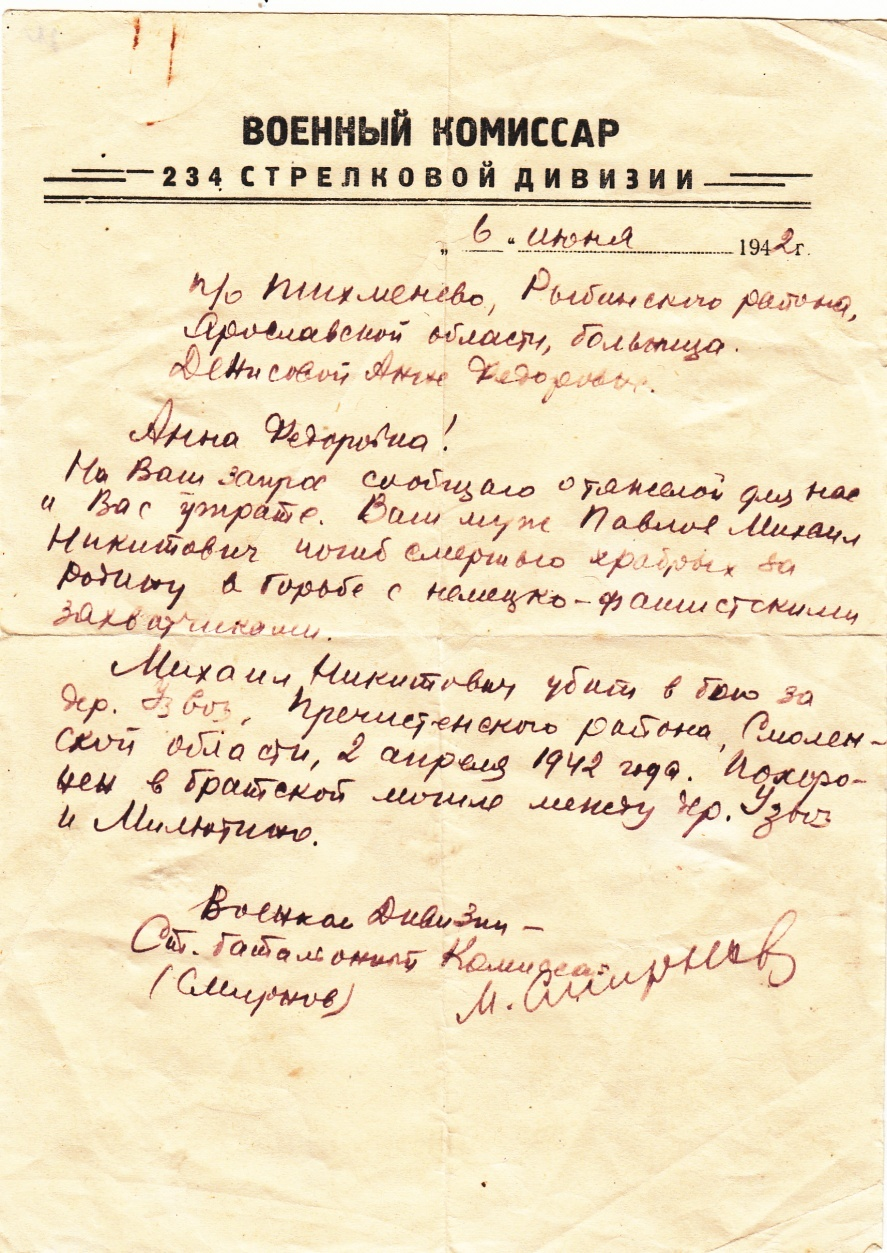 ВОЕННЫЙ КОМИССАР
234 СТРЕЛКОВОЙ ДИВИЗИИ
„ 6 “ июня 1942 г.
п/о Тихменево, Рыбинского района,
Ярославской области, больница.
Денисовой Анне Федоровне.
Анна Федоровна!
На Ваш запрос сообщаю о тяжелой для нас
и Вас утрате. Ваш муж Павлов Михаил
Никитович погиб смертью храбрых за
Родину в борьбе с немецко-фашистскими
захватчиками.
Михаил Никитович убит в бою за
дер. Узвоз, Пречистенского района, Смолен-
ской области, 2 апреля 1942 года. Похоро-
нен в братской могиле между дер. Узвоз
и Милютино.
Военком Дивизии –
Ст. батальонный Комиссар
(Смирнов) М. Смирнов